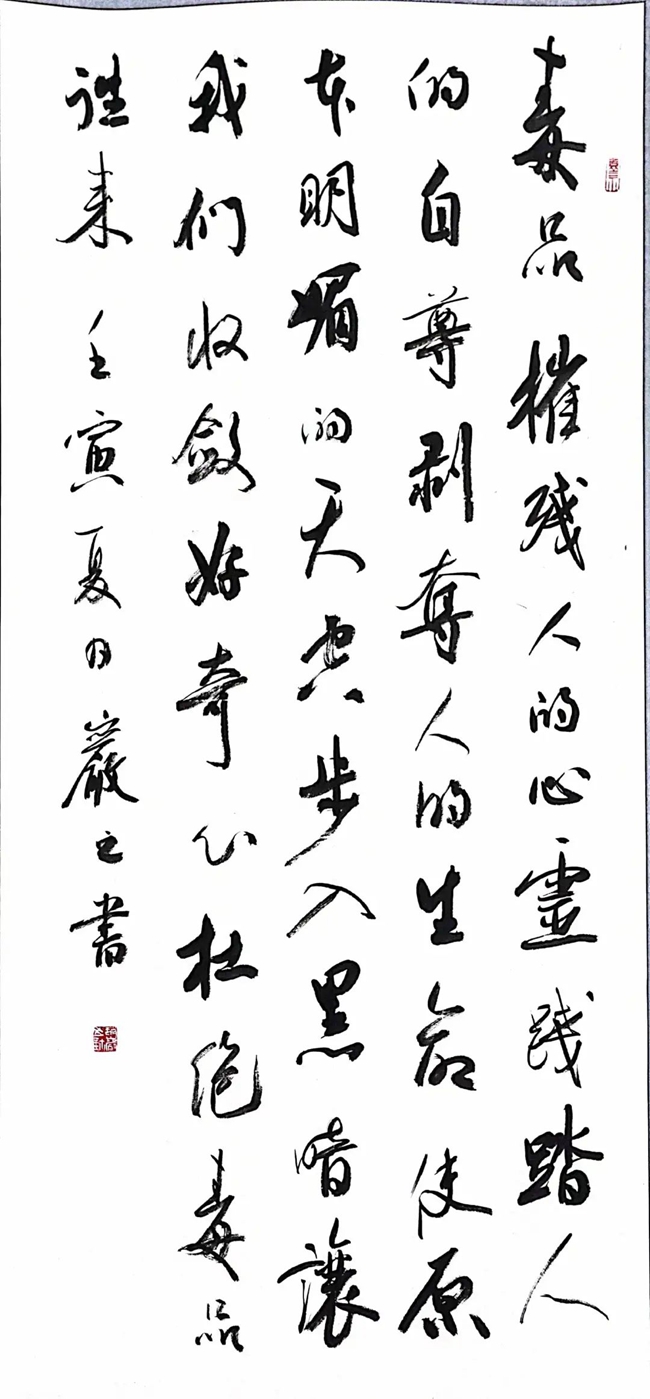 毒品摧残人的心靈践踏人
的自尊剥奪人的生命使原
本明媚的天空步入黑暗讓
我们收敛好奇心杜绝毒品
来 壬寅夏月嚴之書